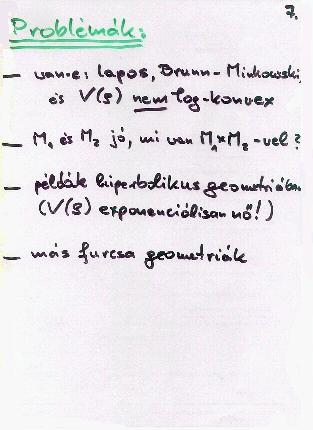 7.
Problémák:
— van-e: lapos, Brunn-Minkowski,
és V(ρ) nem log-konvex
— M₁ és M₂ jó, mi van M₁×M₂-vel?
— példák hiperbolikus geometriában
(V(ρ) exponenciálisan nő!)
— más furcsa geometriák